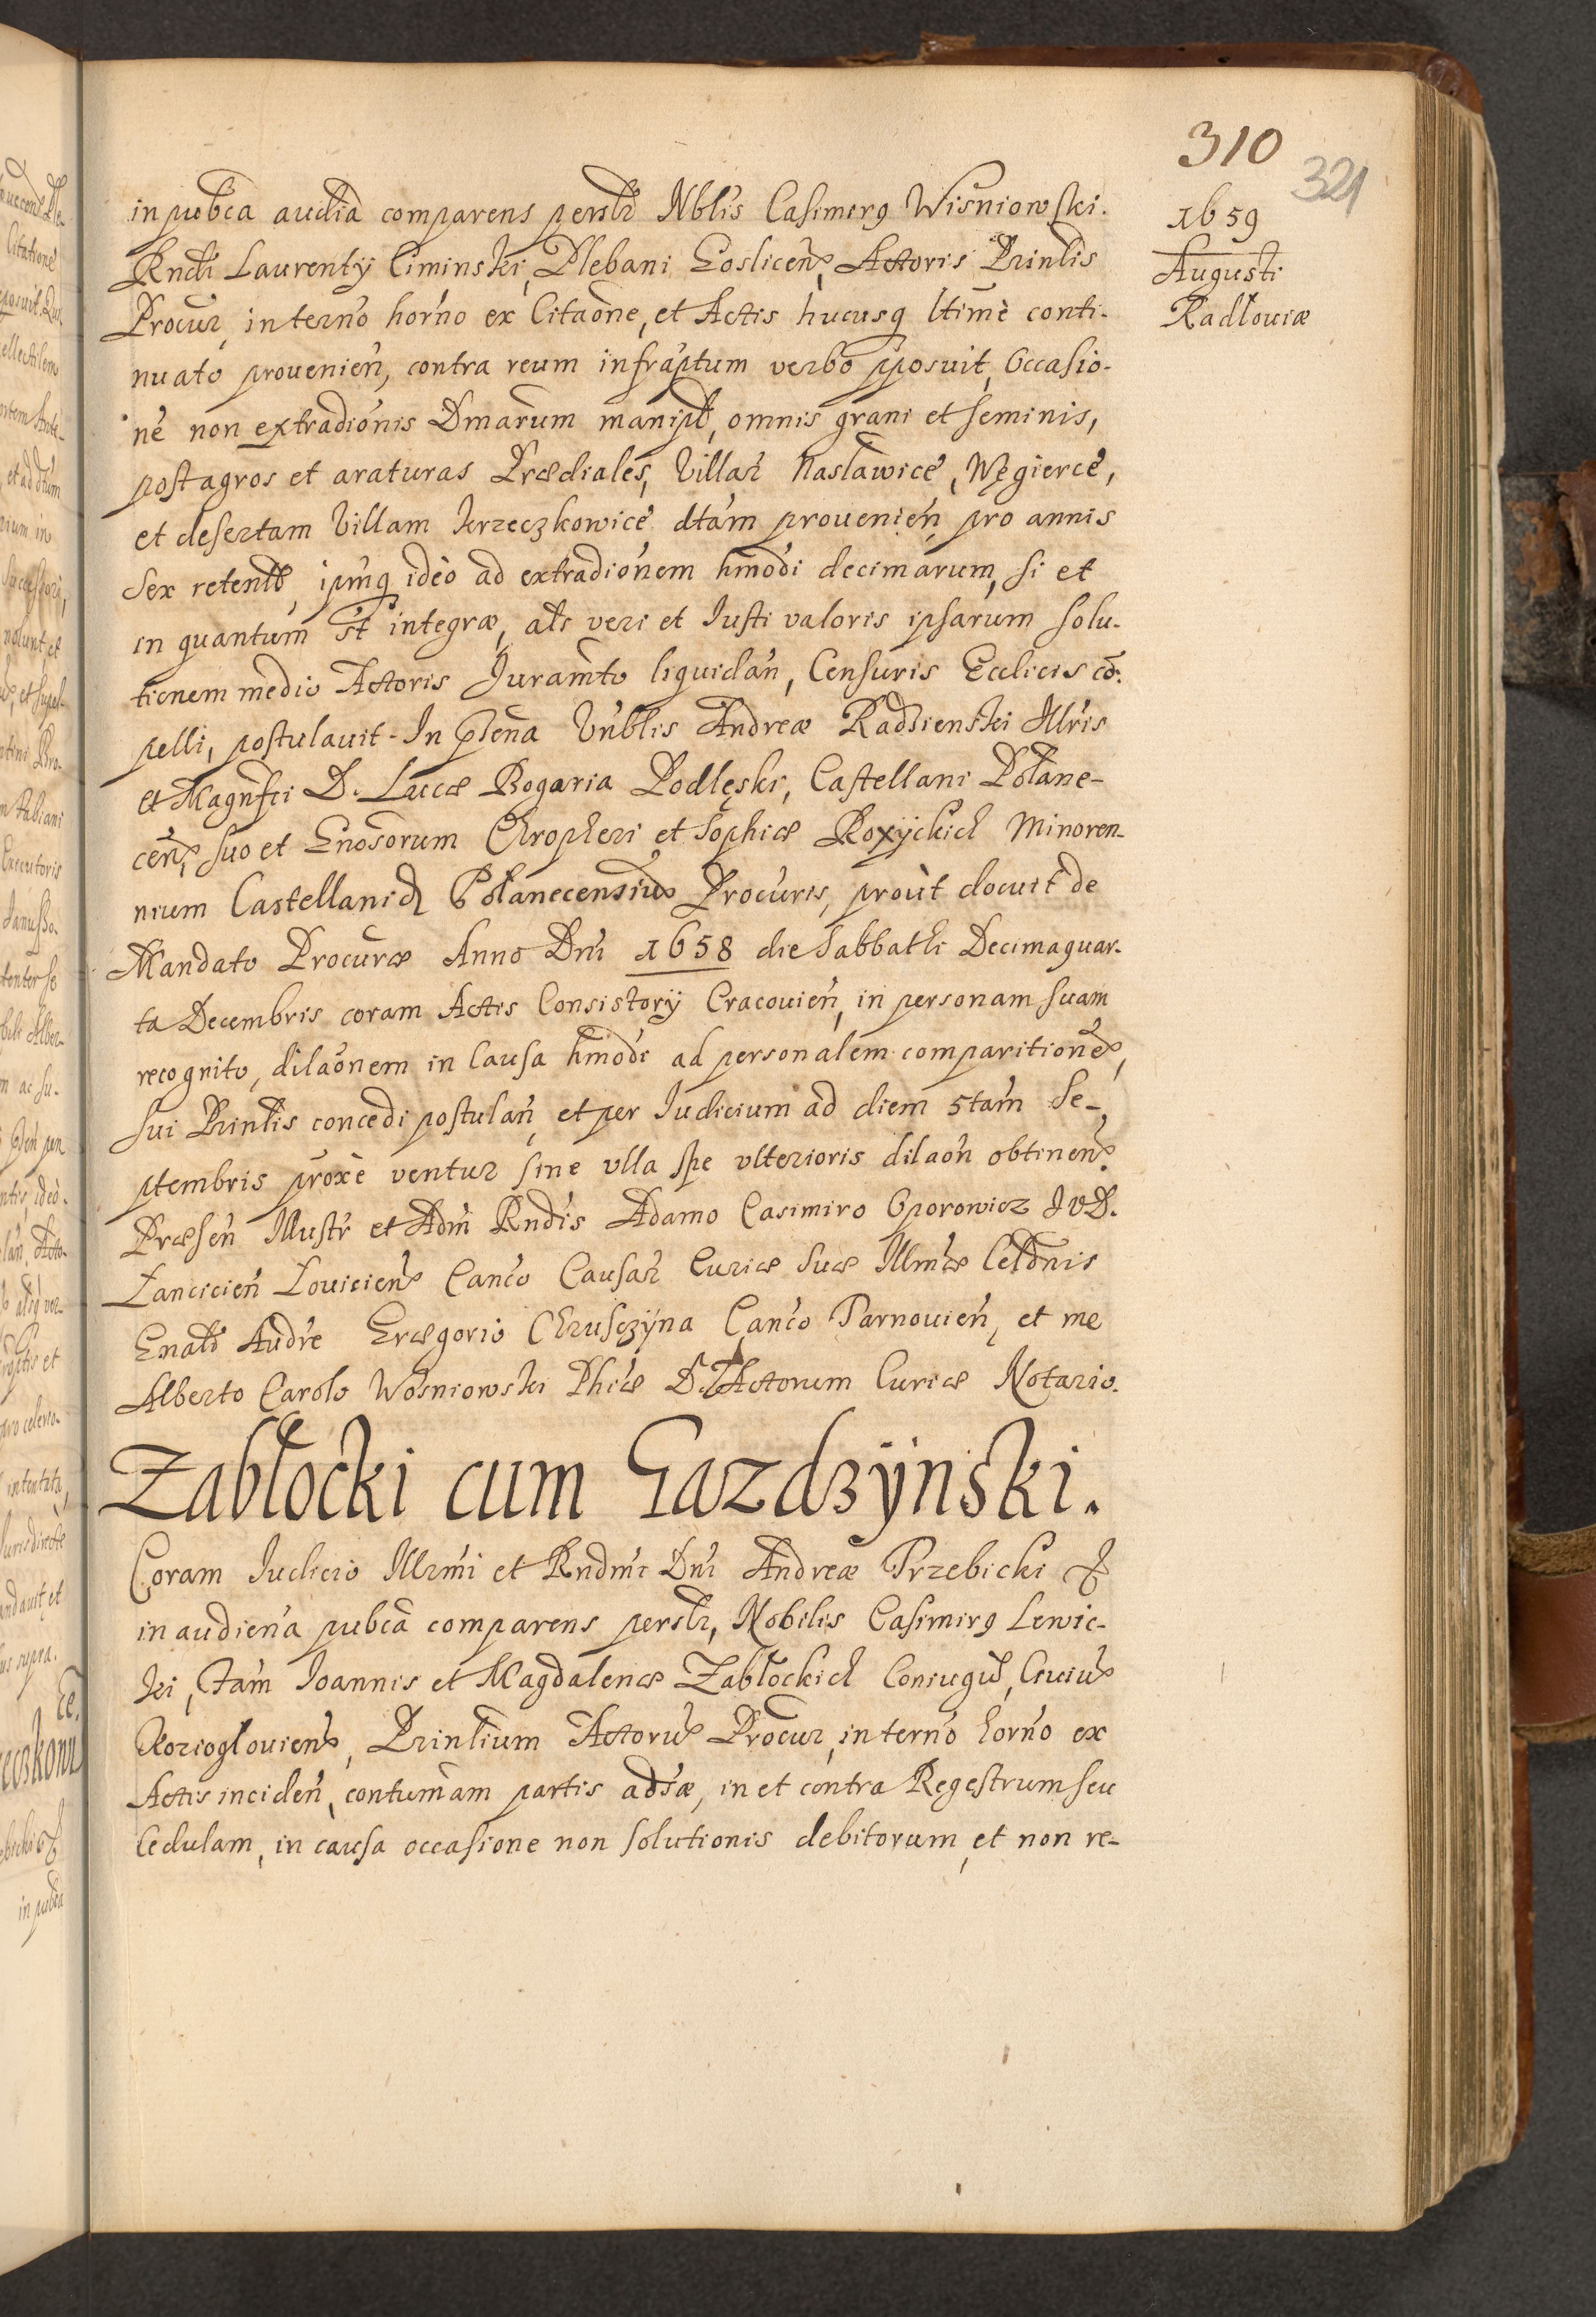 310
321
1659
Augusti
Radłouiæ
in pub̃ca audia comparens perslr Nblis Casimerq Wiśniowski.
Rndi Laurentÿ Ciminski, Plebani Goslicen, Actoris Prinlis
Procur, in terno horno ex Citaone, et Actis hucusq ltimè conti-
nuato prouenien, contra reum infraptum verbo pposuit, Occasio-
ne non extradionis Dmarum manipl, omnis grani et seminis,
post agros et araturas Prædiales, Villar Nasławice, Węgierce,
et desertam Villam Jerzeczkowice dtam prouenien pro annis
Sex retent, ipmq ideò ad extradionem hmodi decimarum, si et
in quantum st integræ, als veri et Justi valoris ipsarum solu-
tionem medio Actoris Juramto liquidan, Censuris Ecclicis cō-
pelli, postulauit. In pſena Vnblis Andreæ Radzienski Illris
et Magnfci D. Lucæ Bogaria Podlęski, Castellani Połane-
cen, suo et Gnosorum Chropheri et Sophiæ Roxÿckich Minoren-
nium Castellanid Połanecensium Procuris, prout docuit de
Mandato Procuræ Anno Dni 1658 die Sabbathi Decimaquar-
ta Decembris coram Actis Consistorÿ Cracouien, in personam suam
recognito, dilaonem in Causa hmodi ad personalem comparitione,
sui Prinlis concedi postulan, et per Judicium ad diem 5tam Se-
ptembris proxè ventur sine vlla spe vlterioris dilaon obtinen.
Præsen Illustr et Adm Rndis Adamo Casimiro Oporowicz JVD.
Lancicien Louicien Canco Causar Curiæ Suæ Illmæ Celdnis
Gnali Audre Grægorio Chrusczÿna Canco Tarnouien, et me
Alberto Carolo Wośniowski Phiæ D. Actorum Curiæ Notario.
Zabłocki cum Gazdzÿnski.
Coram Judicio Illrmi et Rndmi Dni Andreæ Trzebicki &
in audiena pubca comparens perslr, Nobilis Casimirq Lewic-
ki, tam Joannis et Magdalenæ Zabłockich Coniugu, Ciuiu
Kozioglouien, Prinlium Actoru Procur, in terno horno ex
Actis inciden, contumam partis adsæ, in et contra Regestrum seu
Cedulam, in causa occasione non solutionis debitorum, et non re-